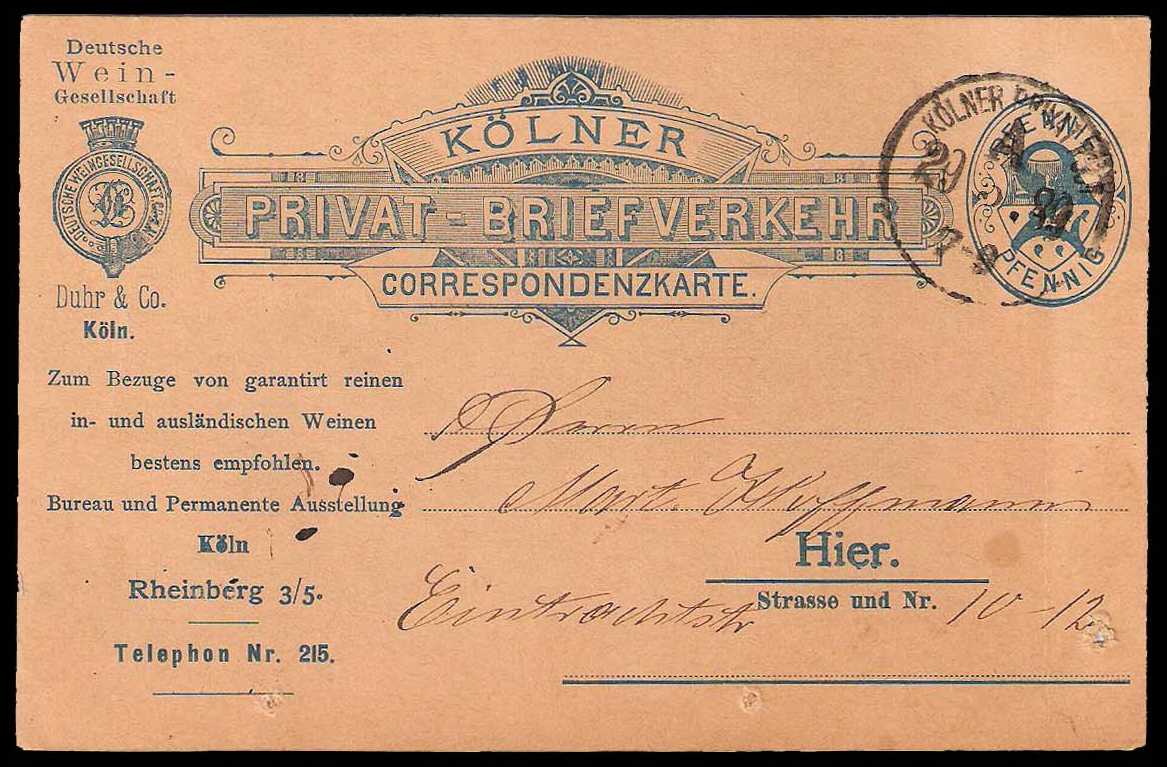 Deutsche
Wein-
Gesellschaft
DEUTSCHE WEINGESELLSCHAFT
Duhr & Co.
Köln.
KÖLNER
PRIVAT-BRIEFVERKEHR
CORRESPONDENZKARTE.
KÖLNER
29
7-8
PFENNIG
Zum Bezuge von garantirt reinen
in- und ausländischen Weinen
bestens empfohlen.
Bureau und Permanente Ausstellung
Köln
Rheinberg 3/5.
Telephon Nr. 215.
Herrn
Mart. Hoffmann
Hier.
Eintrachtstr
Strasse und Nr. 10-12